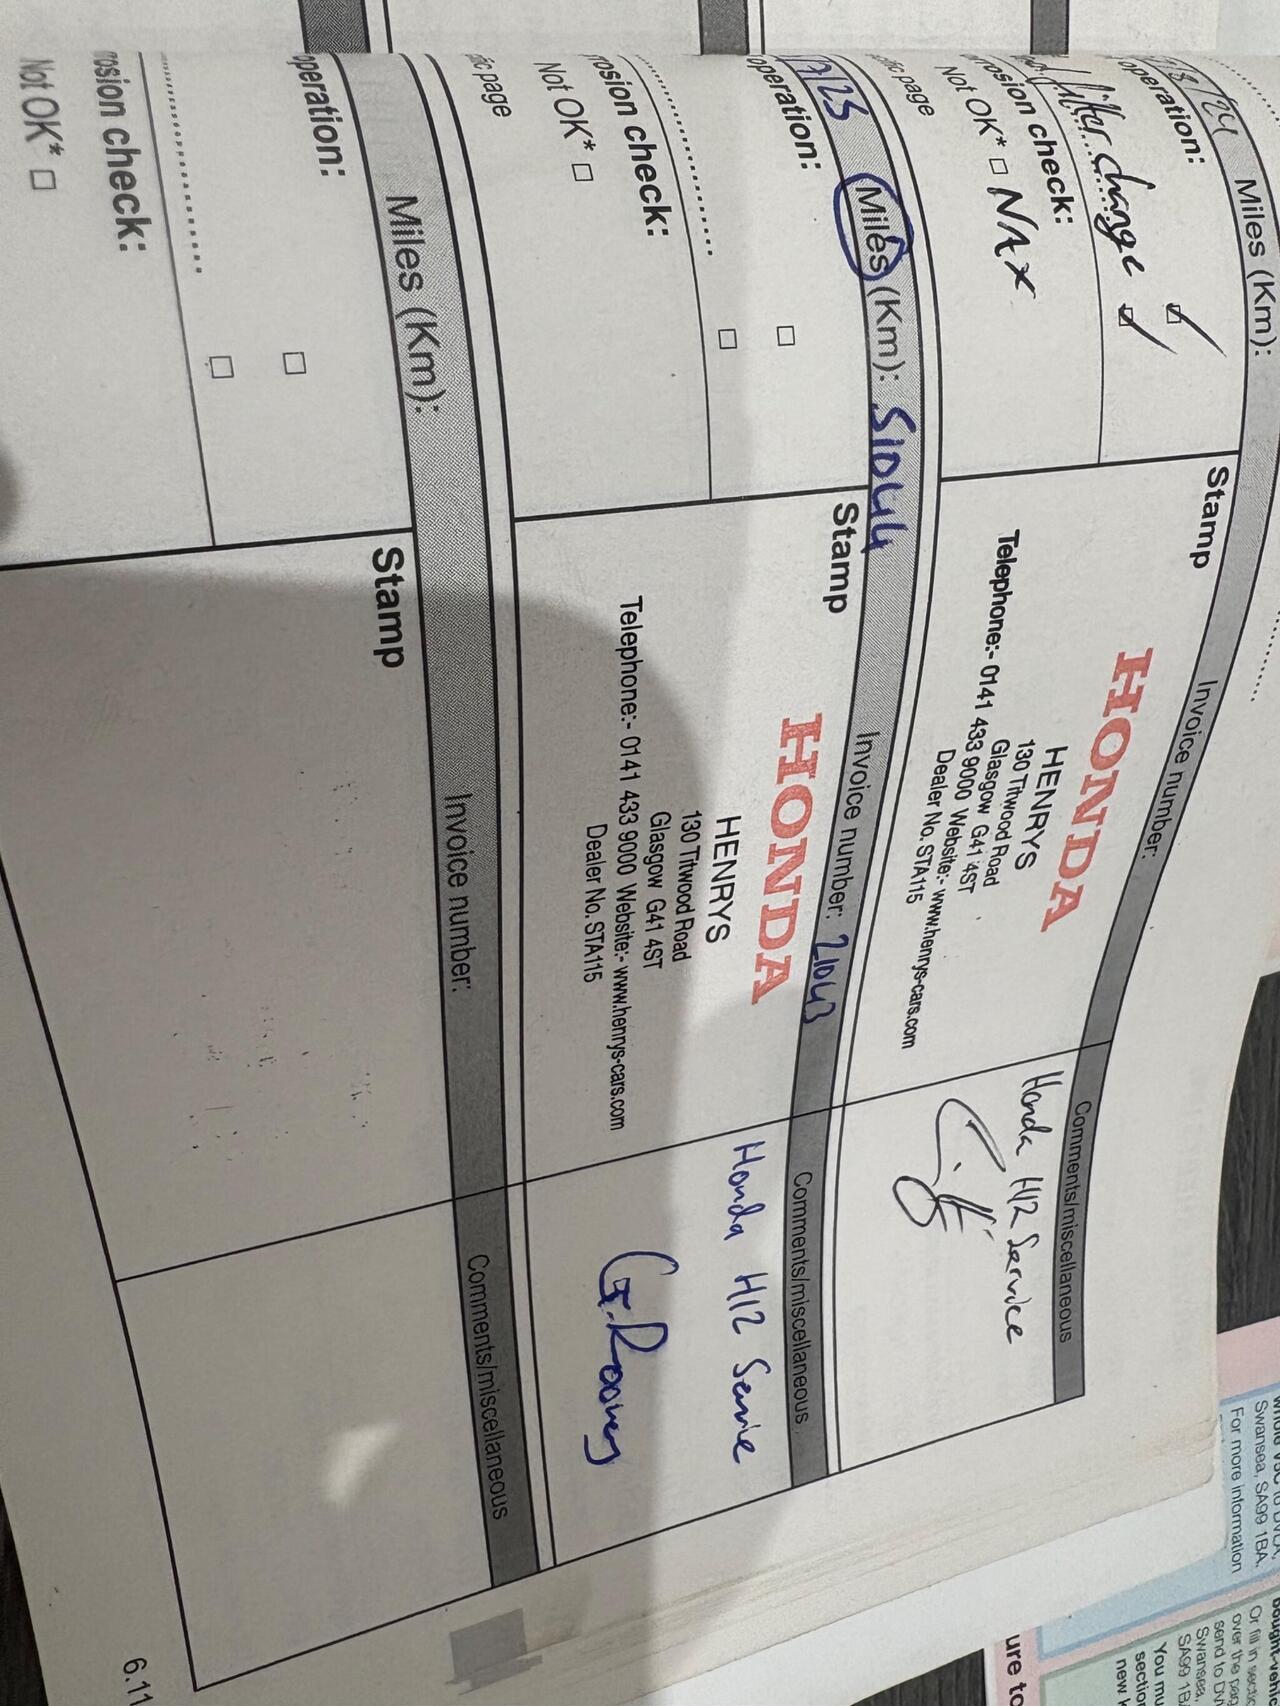 /8/24 Miles (Km): Invoice number: Comments/miscellaneous
operation:
filter change
rosion check:
Not OK* □ NAX
fic page
Stamp
HONDA
HENRYS
130 Titwood Road
Glasgow G41 4ST
Telephone:- 0141 433 9000 Website:- www.henrys-cars.com
Dealer No. STA115
Honda H12 Service
7/25 Miles (Km): 51044 Invoice number: 21043 Comments/miscellaneous
operation:
rosion check:
Not OK* □
fic page
Stamp
HONDA
HENRYS
130 Titwood Road
Glasgow G41 4ST
Telephone:- 0141 433 9000 Website:- www.henrys-cars.com
Dealer No. STA115
Honda H12 Service
G. Rooney
Miles (Km): Invoice number: Comments/miscellaneous
operation:
rosion check:
Not OK* □
Stamp
6.11
Swansea, SA99 1BA.
For more information
Or fill in section
over the page
send to DV
Swansea
SA99 1BA
You mu
section
new k
ure to